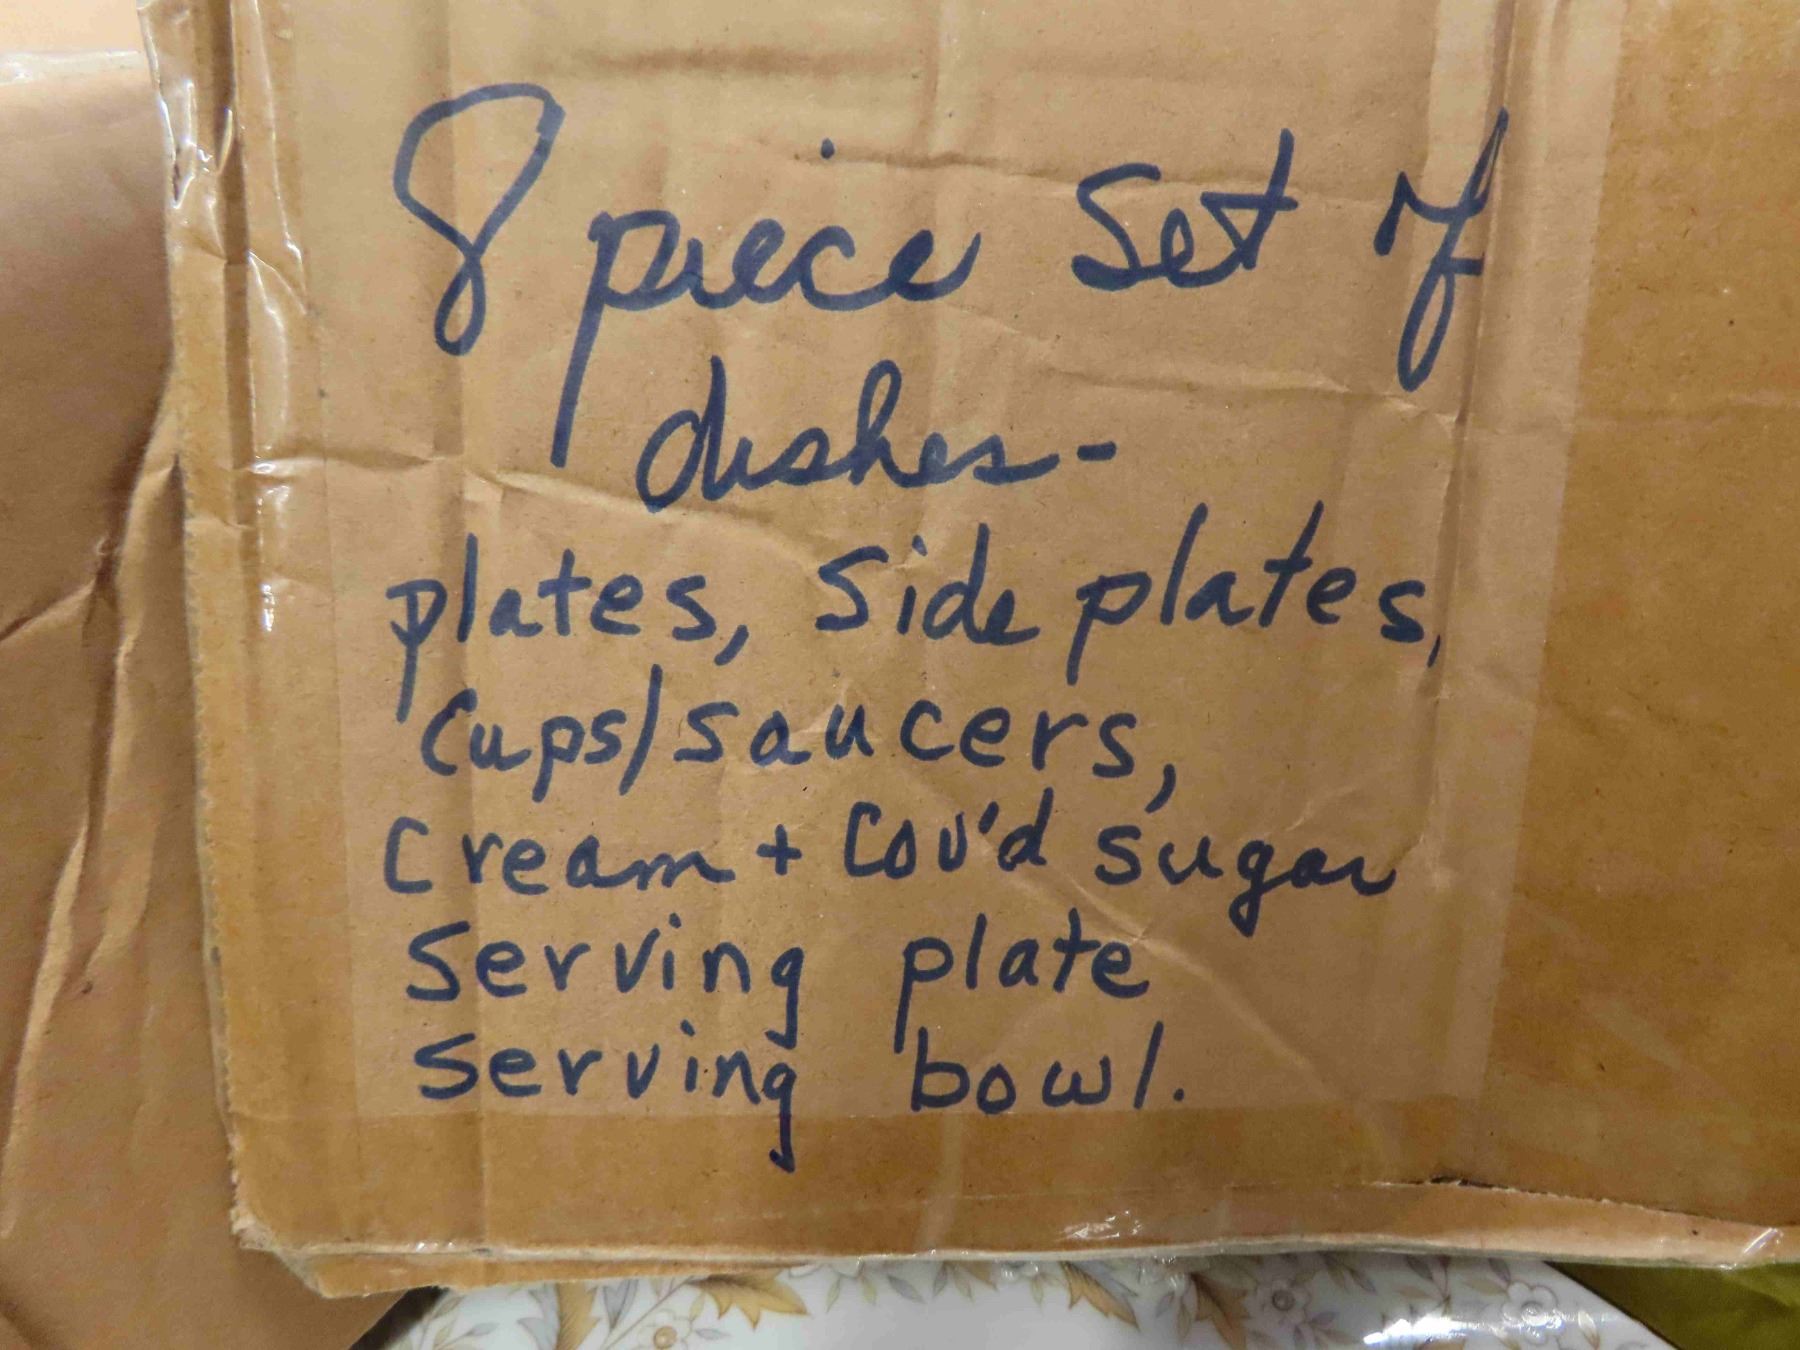 8 piece set of
dishes-
plates, side plates,
Cups/saucers,
Cream + Cov'd sugar
Serving plate
Serving bowl.